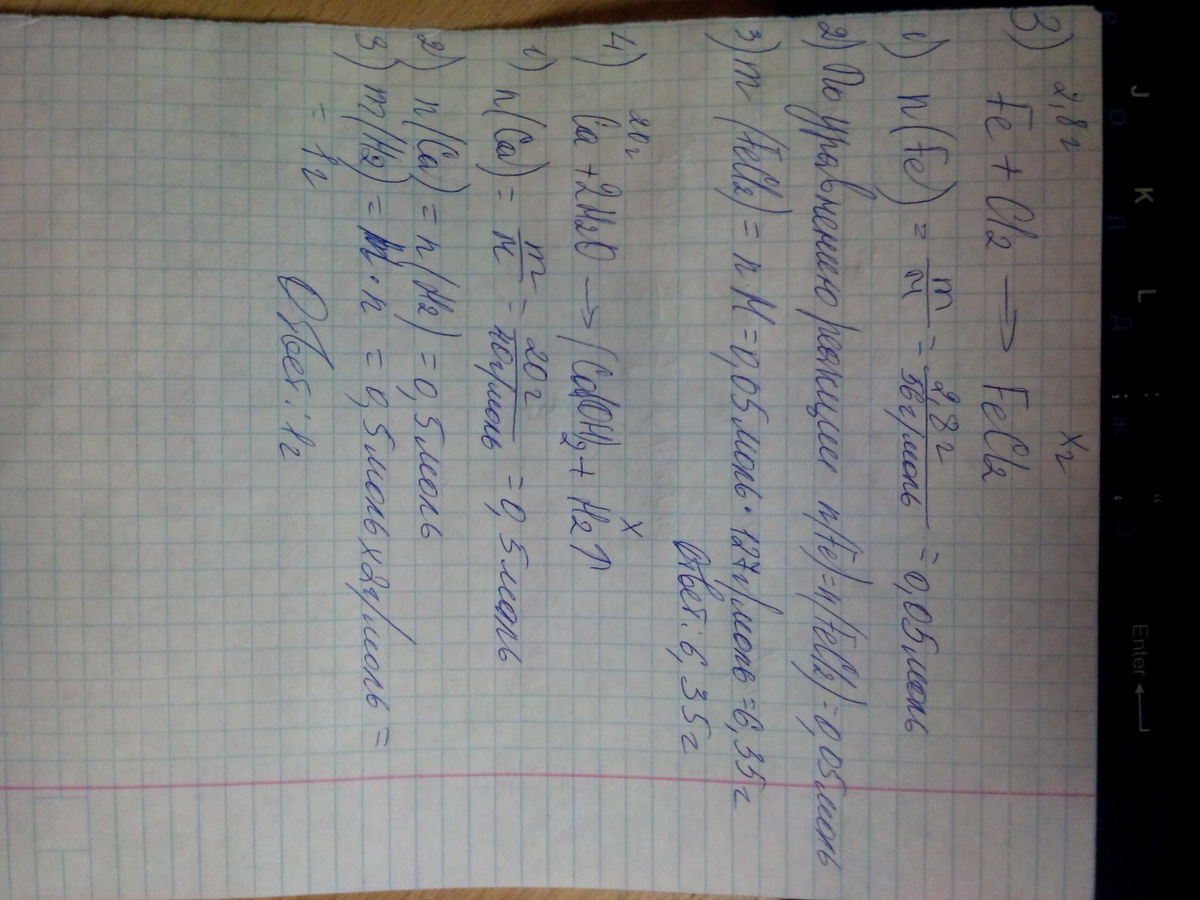 3) 2,8г хг
Fe + Cl2 → FeCl2
1) n(Fe) = m/M = 2,8г/56г/моль = 0,05моль
2) По уравнению реакции n(Fe)=n(FeCl2)=0,05моль
3) m (FeCl2) = n·M = 0,05моль·127г/моль = 6,35г
Ответ: 6,35г
20г х
4) Ca + 2H2O → Ca(OH)2 + H2↑
1) n(Ca) = m/M = 20г/40г/моль = 0,5моль
2) n(Ca) = n(H2) = 0,5моль
3) m(H2) = M·n = 0,5моль х 2г/моль =
= 1г
Ответ: 1г
J K L : “ Enter
О Л Д ; Ж ‘ Э